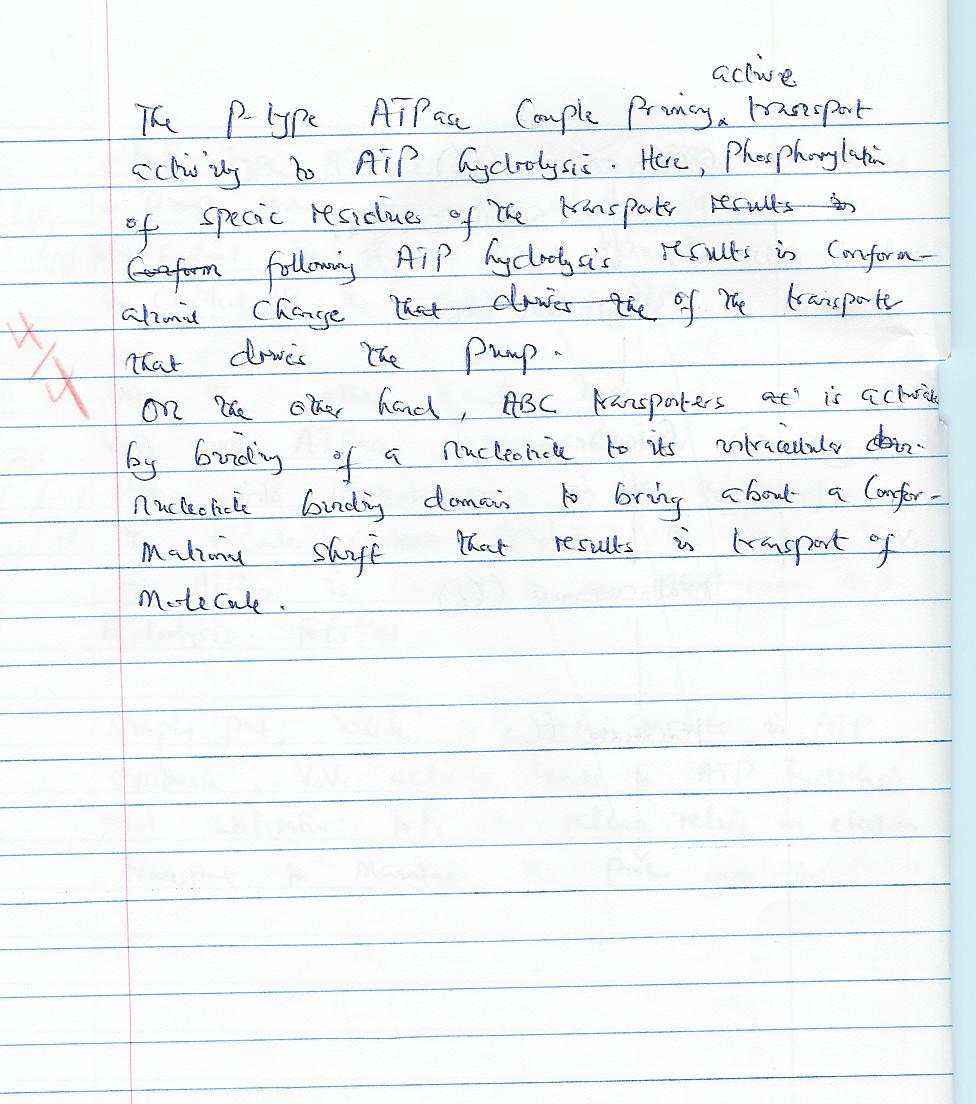 active
The P-type ATPase Couple Primary transport
activity to ATP hydrolysis. Here, Phosphorylation
of specic residues of the transporter results in
Conform following ATP hydrolysis results in Conform-
ational Change that drives the of the transporter
that drives the pump.
4/4
On the other hand, ABC transporters is activate
by binding of a nucleotide to its intracellular
nucleotide binding domain to bring about a Confor-
mational shift that results in transport of
molecule.